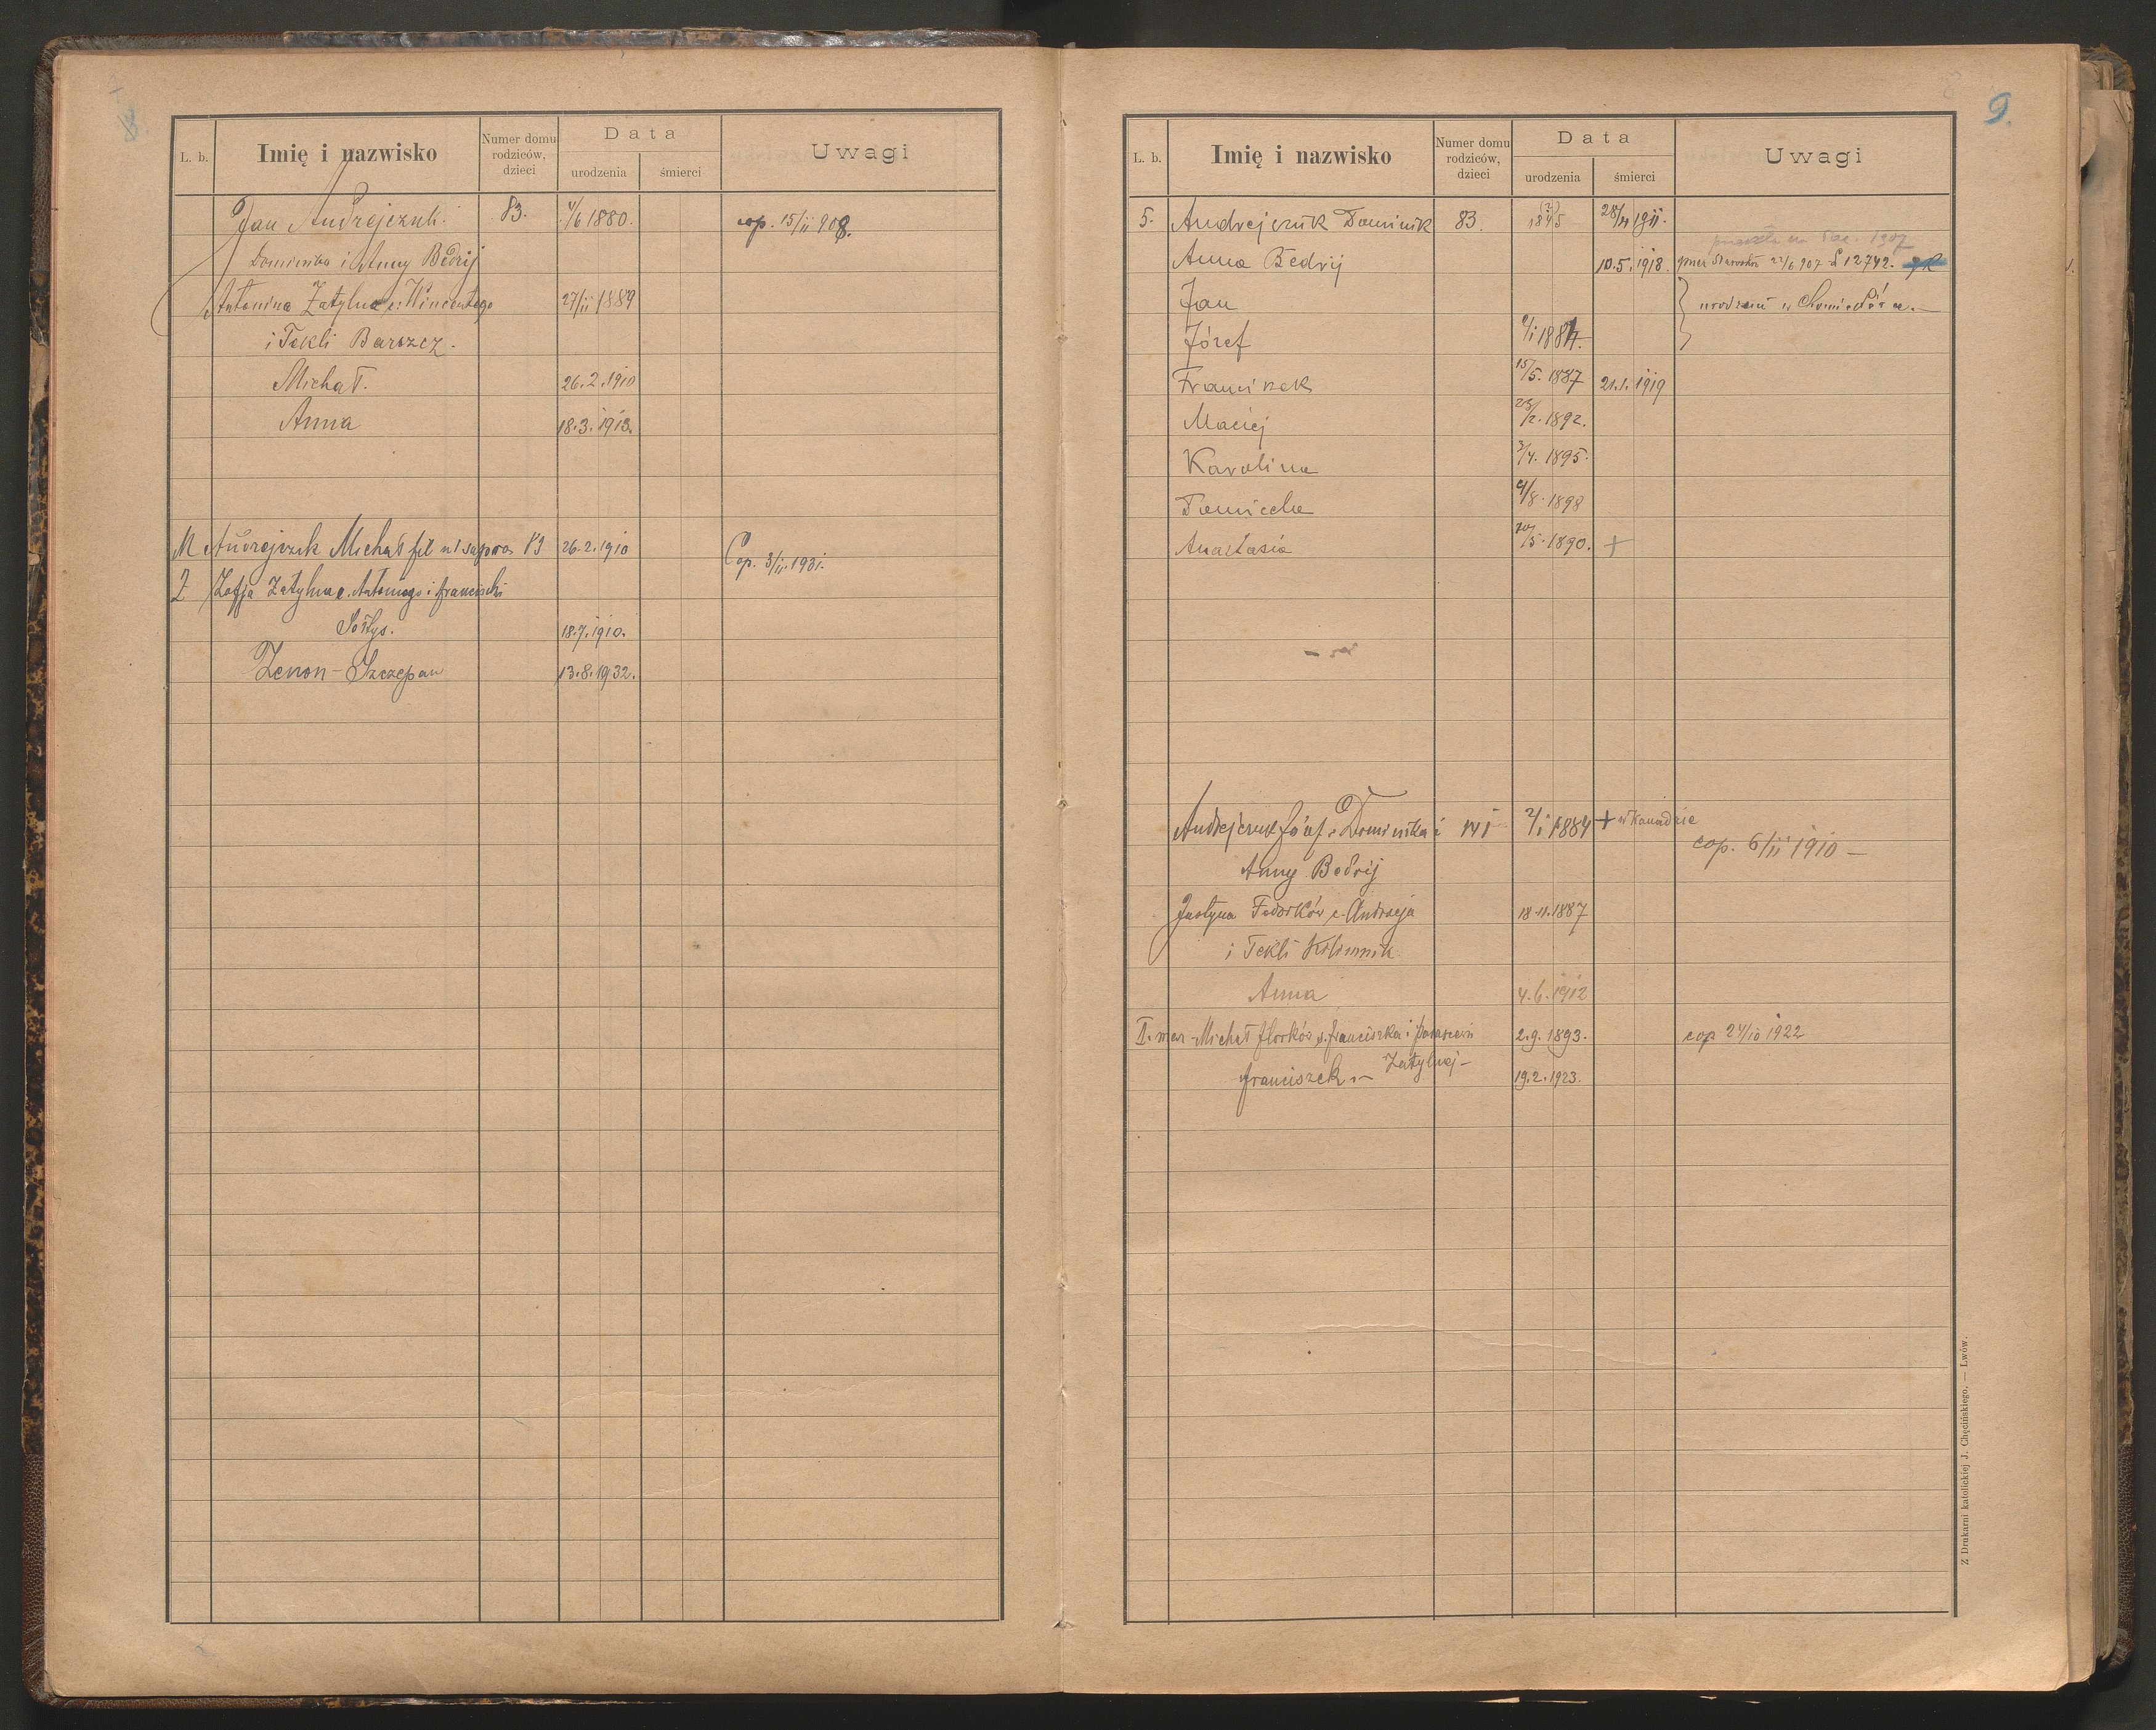 L. b. Imię i nazwisko Numer domu rodziców, dzieci Data urodzenia śmierci Uwagi
Jan Andrejczuk. 83. 4/6 1880. cop. 15/II 908.
Dominika i Anny Bedrij
Antonina Zatylna c. Wincentego 27/II 1889
i Tekli Barszcz.
Michał. 26.2.1910
Anna 18.3.1913.
M Andrejczuk Michał fil ut supra 83 26.2.1910 Cop. 3/II.1931.
Ż Zofja Zatylna c. Antoniego i Franciszki
Sołtys. 18.7.1910.
Zenon-Szczepan 13.8.1932.
9.
L. b. Imię i nazwisko Numer domu rodziców, dzieci Data urodzenia śmierci Uwagi
5. Andrejczuk Dominik 83. (?) 1845 28/4 1911.
1907
Anna Bedrij 10.5.1918 przez Starostwo 22/6 907 L 12742.
Jan urodzeni w
Józef 2/I 1884.
Franciszek 15/5. 1887 21.1.1919
Maciej 23/2. 1892.
Karolina 3/4. 1895.
4/8. 1898
Anastasia 20/5. 1890. +
Andrejczuk Józef s. Dominika i 141 2/I 1884 + w Kanadzie
cop. 6/II 1910 —
Anny Bedrij
Justyna Fedorków c. Andrzeja 18.11.1887
i Tekli Kilimnik
Anna 4.6.1912
II. mar. Michał Florków s. Franciszka i 2.9.1893. cop 24/10 1922
Zatylnej —
Franciszek 19.2.1923.
Z Drukarni katolickiej J. Chęcińskiego. — Lwów.